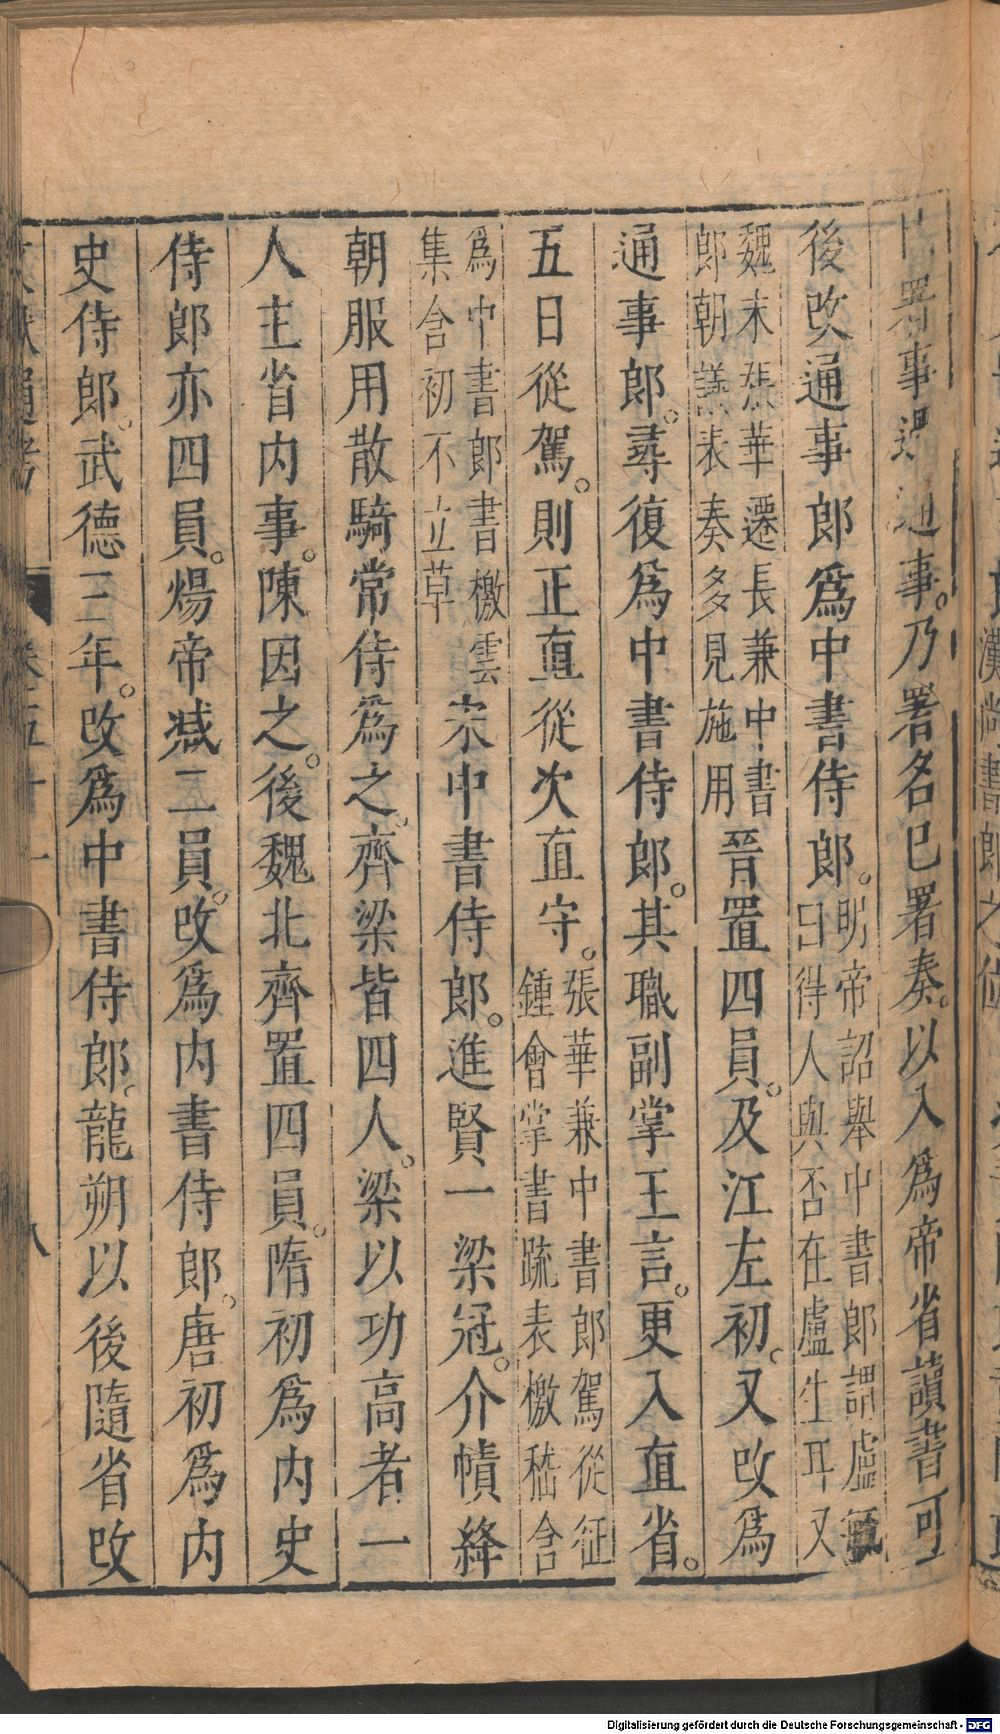 署事過通事。乃署名已署奏。以入爲帝省讀書可
後改通事郎爲中書侍郎。
明帝詔舉中書郎謂盧毓
曰得人與否在盧生耳又
魏末張華遷長兼中書
郎朝議表奏多見施用
晉置四員。及江左初。又改爲
通事郎。尋復爲中書侍郎。其職副掌王言。更入直省。
五日從駕。則正直從次直守。
張華兼中書郎駕從征
鍾會掌書疏表檄嵇含
爲中書郎書檄雲
集含初不立草
宋中書侍郎。進賢一梁冠。介幘絳
朝服用散騎常侍爲之。齊梁皆四人。梁以功高者一
人主省内事。陳因之。後魏北齊置四員。隋初爲内史
侍郎亦四員。煬帝減二員。改爲内書侍郎。唐初爲内
史侍郎。武德三年。改爲中書侍郎。龍朔以後隨省改
文獻通考 卷五十一 八
漢尚書郎之
Digitalisierung gefördert durch die Deutsche Forschungsgemeinschaft - DFG